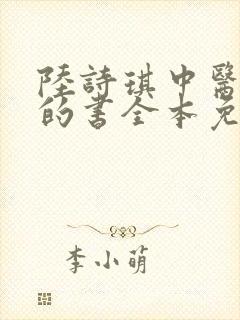 陸詩琪中醫
的書全本免
李小萌